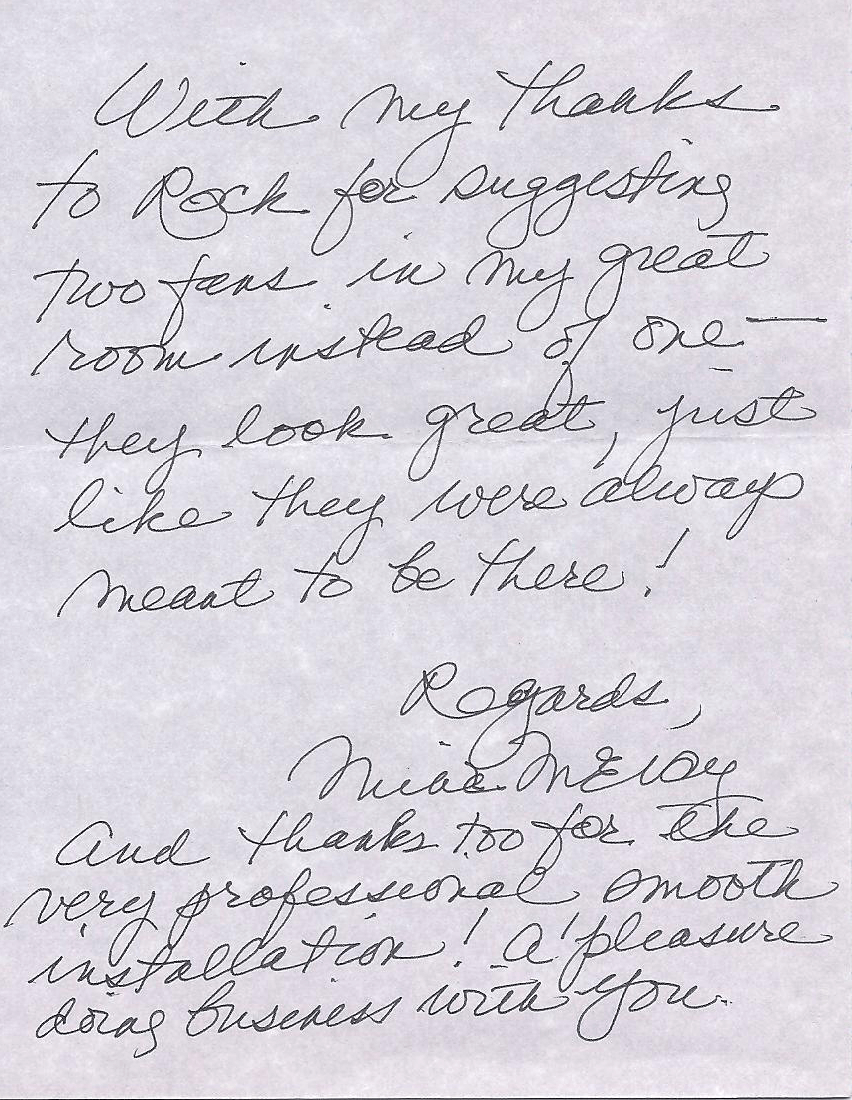 With my thanks
to Rock for suggesting
two fans in my great
room instead of one —
they look great, just
like they were always
meant to be there!
Regards,
And thanks too for the
very professional smooth
installation! A pleasure
doing business with you.